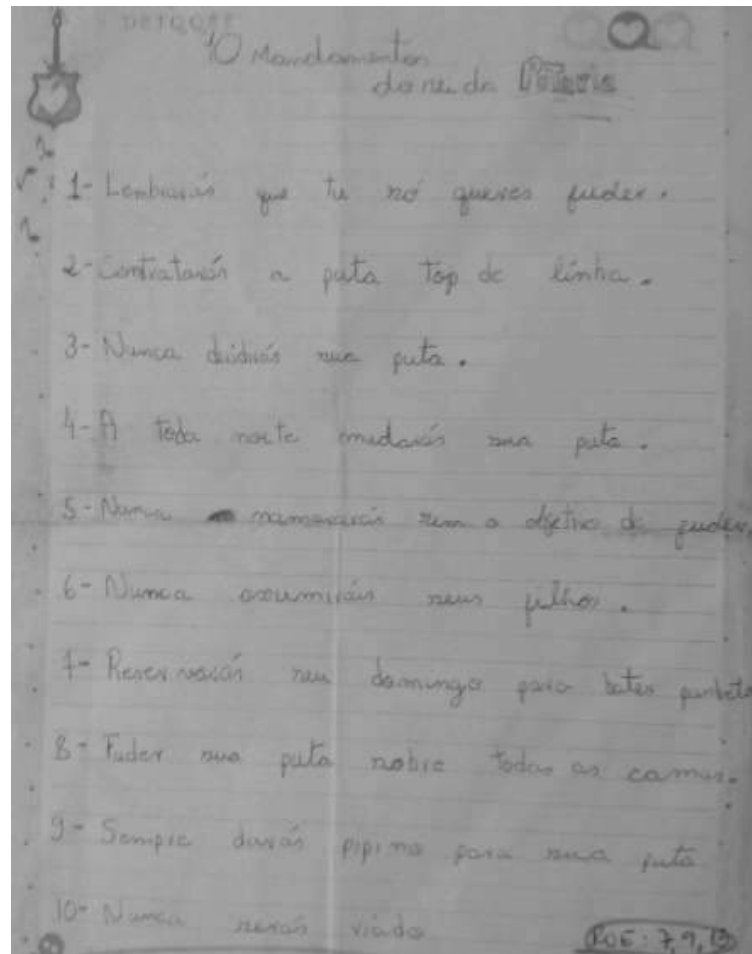 10 Mandamentos
do rei da
1- Lembrarás que tu só queres fuder.
2- Contratarás a puta top de linha.
3- Nunca dividirás sua puta.
4- A toda noite mudarás sua puta.
5- Nunca namorarás sem o objetivo de fuder.
6- Nunca assumirás seus filhos.
7- Reservarás seu domingo para bater punheta
8- Fuder sua puta sobre todas as camas.
9- Sempre darás pipino para sua puta
10- Nunca serás viado
ROE: 7, 9, 13